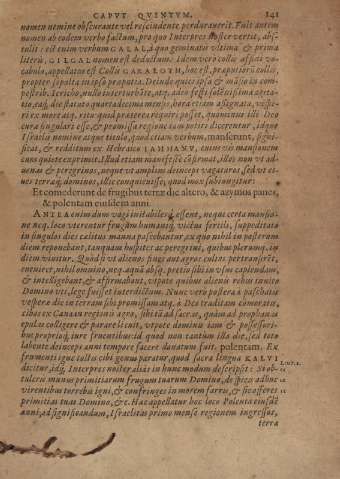 CAPVT QVINTVM. 141
nomen nomine obscurante vel rescindente perduraverit. Fuit autem
nomen ab eodem verbo factum, pro quo Interpres noster vertit, abs-
tuli: est enim verbum GALAL, à quo geminatur ultima & prima
litera, GILGAL nomen est deductum. Idem vero collis affini vo-
cabulo, appellatur est Collis GARALOTH, hoc est, præputiorum collis,
propter in ipso
pestrib. Iericho, nullo interturbāte, atq; adeo festi solēnissima agita-
tio, eaq; die statuto quartadecima mensis, hora etiam assignata, vespe-
ri ex more atq; ritu quid præterea requiri posset, quominus illi Deo
cura singulari esse, & promissa regione iam potiri dicerentur, idque
Israëlis nomine atque titulo, quod etiam verbum, manserunt, signi-
ficat, & redditum ex Hebraico IAHHANV, cuius vis mansionem
cum quiete exprimit. Illud etiam manifestè cōfirmat, illos non vt ad-
venas & peregrinos, neque vt amplius deinceps vagaturos, sed vt ei-
us terræ dominos, illic conquievisse, quod mox subiungitur:
Et comederunt de frugibus terræ die altero, & azymos panes,
& polentam eiusdem anni.
ANTEA enim dum vagi inst abiles essent, neque certa mansio-
ne neq; loco vterentur frugum humanaq; victus fertilis, suppeditato
in singulos dies cælitus manna pascebantur, ex quo nihil in posterum
diem reponebant, tanquam hospites ac peregrini, quibus plerunq; in
diem vivitur. Quòd si vt alienos fines aut agros cuius pertransirēt,
emturos nihil omnino, neq; aquā absq; pretio sibi in vsus capiendam,
& intelligebant, & affirmabant, vtpote quibus alienis rebus invito
Domino vti, lege fuisset interdictum. Nunc verò postera à paschatis
vespere die in terram sibi promissam atq; à Deo traditam
cibos ex CANAAN regionis agro, sibi tū ad sacras, quàm ad prophanas
epulas colligere & parare licuit, vtpote dominis iam & possessori-
bus propriis, iure fructibus: id quod non tantum illa die, sed toto
labente deinceps anni tempore facere datum fuit. polentam. Ex
frumenti igne tostis cibi genus paratur, quod sacra lingua KALVI
dicitur, idq; Interpres noster aliàs in hunc modum descripsit: Si ob-
tuleris munus primitiarum frugum tuarum Domino, de spicis adhuc
virentibus torrebis igni, & confringes in morem farris, & sic offeres
primitias tuas Domino, &c. Hæc appellatur hoc loco Polenta eiusdē
anni, ad significandum, Israëlitas primo mense regionem ingressos,
terra